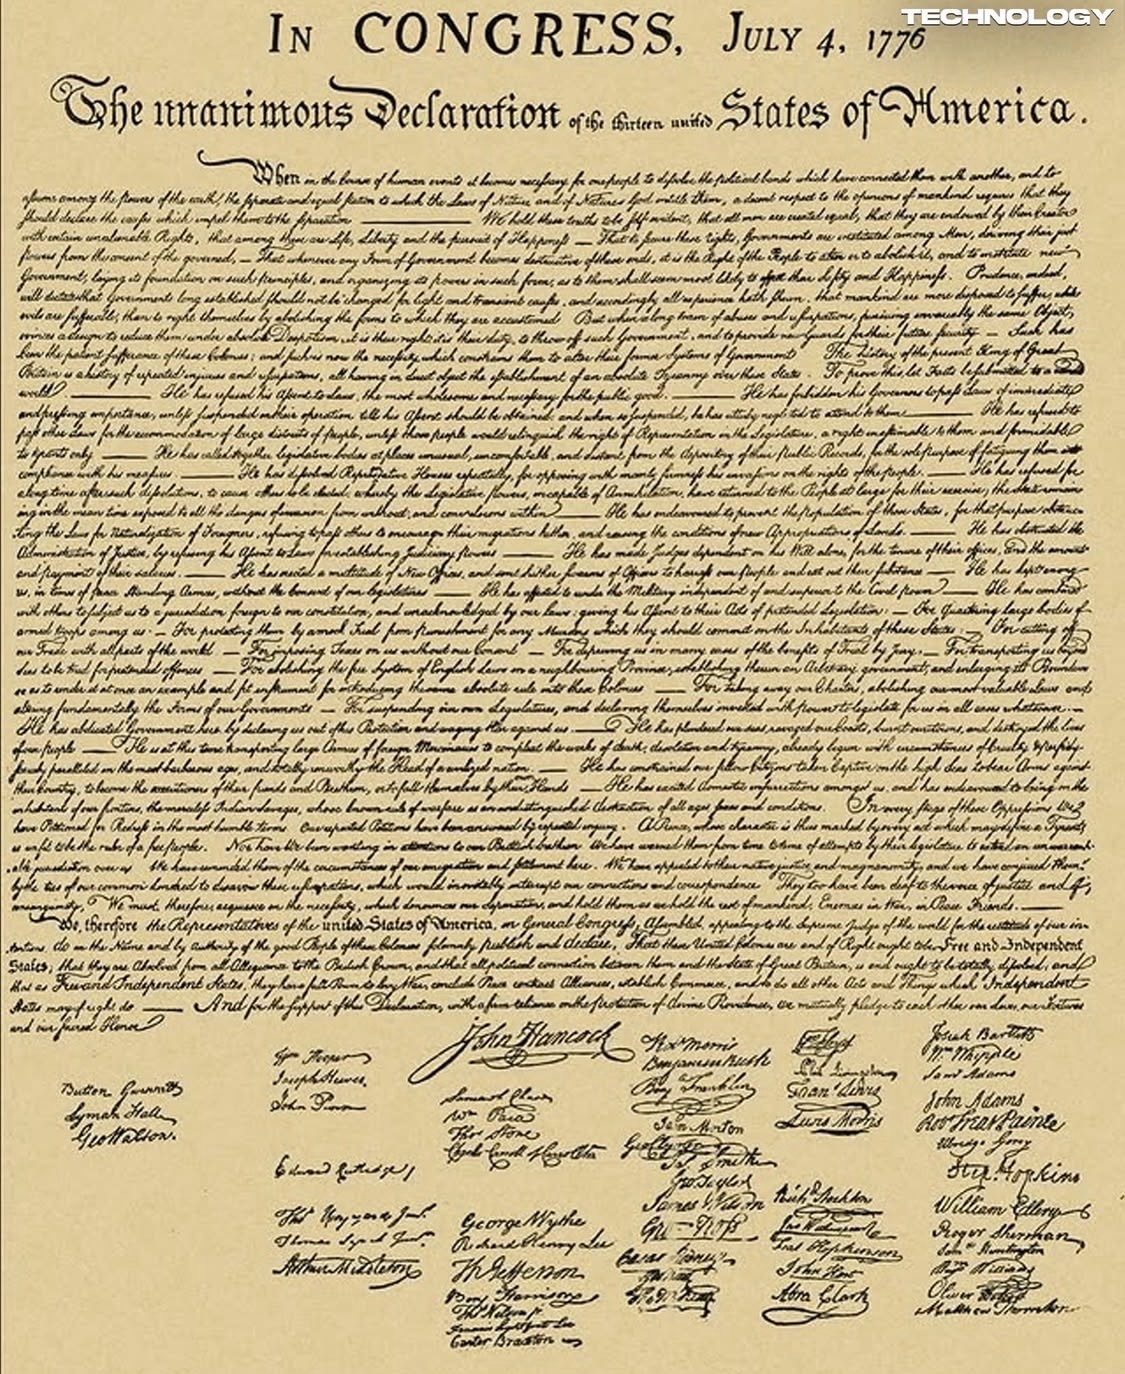 TECHNOLOGY
In CONGRESS, July 4, 1776
The unanimous Declaration of the thirteen united States of America.
When in the Course of human events it becomes necessary for one people to dissolve the political bands which have connected them with another, and to
assume among the powers of the earth, the separate and equal station to which the Laws of Nature and of Nature's God entitle them, a decent respect to the opinions of mankind requires that they
should declare the causes which impel them to the separation — We hold these truths to be self evident, that all men are created equal, that they are endowed by their Creator
with certain unalienable Rights, that among these are Life, Liberty and the pursuit of Happiness — That to secure these rights, Governments are instituted among Men, deriving their just
powers from the consent of the governed, — That whenever any Form of Government becomes destructive of these ends, it is the Right of the People to alter or to abolish it, and to institute new
Government, laying its foundation on such principles, and organizing its powers in such form, as to them shall seem most likely to effect their Safety and Happiness. Prudence, indeed,
will dictate that Governments long established should not be changed for light and transient causes, and accordingly all experience hath shewn, that mankind are more disposed to suffer, while
evils are sufferable, than to right themselves by abolishing the forms to which they are accustomed But when a long train of abuses and usurpations, pursuing invariably the same Object,
evinces a design to reduce them under absolute Despotism, it is their right, it is their duty, to throw off such Government, and to provide new Guards for their future security — Such has
been the patient sufferance of these Colonies; and such is now the necessity which constrains them to alter their former Systems of Government The history of the present King of Great
Britain is a history of repeated injuries and usurpations, all having in direct object the establishment of an absolute Tyranny over these States. To prove this, let Facts be submitted to a
world — He has refused his Assent to Laws, the most wholesome and necessary for the public good. — He has forbidden his Governors to pass Laws of immediate
and pressing importance, unless suspended in their operation till his Assent should be obtained; and when so suspended, he has utterly neglected to attend to them — He has refused to
pass other Laws for the accommodation of large districts of people, unless those people would relinquish the right of Representation in the Legislature, a right inestimable to them and formidable
to tyrants only — He has called together legislative bodies at places unusual, uncomfortable, and distant from the depository of their Public Records, for the sole purpose of fatiguing them into
compliance with his measures — He has dissolved Representative Houses repeatedly, for opposing with manly firmness his invasions on the rights of the people. — He has refused for
a long time, after such dissolutions, to cause others to be elected; whereby the Legislative powers, incapable of Annihilation, have returned to the People at large for their exercise; the State remain
ing in the mean time exposed to all the dangers of invasion from without, and convulsions within — He has endeavoured to prevent the population of these States; for that purpose obstruc
ting the Laws for Naturalization of Foreigners; refusing to pass others to encourage their migrations hither, and raising the conditions of new Appropriations of Lands. — He has obstructed the
Administration of Justice, by refusing his Assent to Laws for establishing Judiciary powers — He has made Judges dependent on his Will alone, for the tenure of their offices, and the amount
and payment of their salaries. — He has erected a multitude of New Offices, and sent hither swarms of Officers to harass our People and eat out their substance — He has kept among
us, in times of peace Standing Armies, without the Consent of our legislatures — He has affected to render the Military independent of and superior to the Civil power — He has combined
with others to subject us to a jurisdiction foreign to our constitution, and unacknowledged by our laws; giving his Assent to their Acts of pretended Legislation: — For Quartering large bodies of
armed troops among us: — For protecting them by a mock Trial from punishment for any Murders which they should commit on the Inhabitants of these States: — For cutting off
our Trade with all parts of the world — For imposing Taxes on us without our Consent — For depriving us in many cases of the benefits of Trial by Jury: — For transporting us beyond
Seas to be tried for pretended offences — For abolishing the free System of English Laws in a neighbouring Province, establishing therein an Arbitrary government, and enlarging its Boundaries
so as to render it at once an example and fit instrument for introducing the same absolute rule into these Colonies — For taking away our Charters, abolishing our most valuable Laws and
altering fundamentally the Forms of our Governments — For suspending our own Legislatures, and declaring themselves invested with power to legislate for us in all cases whatsoever. —
He has abdicated Government here, by declaring us out of his Protection and waging War against us. — He has plundered our seas, ravaged our Coasts, burnt our towns, and destroyed the lives
of our people — He is at this time transporting large Armies of foreign Mercenaries to compleat the works of death, desolation and tyranny, already begun with circumstances of Cruelty & perfidy
scarcely paralleled in the most barbarous ages, and totally unworthy the Head of a civilized nation. — He has constrained our fellow Citizens taken Captive on the high Seas to bear Arms against
their Country, to become the executioners of their friends and Brethren, or to fall themselves by their Hands — He has excited domestic insurrections amongst us, and has endeavoured to bring on the
inhabitants of our frontiers, the merciless Indian Savages, whose known rule of warfare is an undistinguished destruction of all ages sexes and conditions. In every stage of these Oppressions We
have Petitioned for Redress in the most humble terms Our repeated Petitions have been answered by repeated injury. A Prince, whose character is thus marked by every act which may define a Tyrant,
is unfit to be the ruler of a free people. Nor have We been wanting in attentions to our British brethren We have warned them from time to time of attempts by their legislature to extend an unwarrant-
able jurisdiction over us We have reminded them of the circumstances of our emigration and settlement here. We have appealed to their native justice and magnanimity, and we have conjured them
by the ties of our common kindred to disavow these usurpations, which would inevitably interrupt our connections and correspondence They too have been deaf to the voice of justice and of
consanguinity. We must, therefore, acquiesce in the necessity, which denounces our Separation, and hold them, as we hold the rest of mankind, Enemies in War, in Peace Friends. —
We, therefore the Representatives of the united States of America, in General Congress, Assembled, appealing to the Supreme Judge of the world for the rectitude of our in-
tentions, do in the Name and by authority of the good People of these Colonies solemnly publish and declare, That these United Colonies are and of Right ought to be Free and Independent
States; that they are Absolved from all Allegiance to the British Crown, and that all political connection between them and the State of Great Britain, is and ought to be totally dissolved; and
that as Free and Independent States, they have full Power to levy War, conclude Peace contract Alliances, establish Commerce, and to do all other Acts and Things which Independent
States may of right do — And for the support of this Declaration, with a firm reliance on the Protection of divine Providence, we mutually pledge to each other our Lives, our Fortunes
and our sacred Honor
Button Gwinnett
Lyman Hall
Geo Walton.
Wm Hooper
Joseph Hewes,
John Penn
Edward Rutledge
Thos Heyward Junr.
Thomas Lynch Junr.
Arthur Middleton
John Hancock
Samuel Chase
Wm Paca
Thos Stone
Charles Carroll of Carrollton
George Wythe
Richard Henry Lee
Th Jefferson
Benj Harrison
Thos Nelson jr.
Francis Lightfoot Lee
Carter Braxton
Robt Morris
Benjamin Rush
Benj Franklin
John Morton
Geo Clymer
Jas Smith
Geo Taylor
James Wilson
Geo Ross
Caesar Rodney
Geo Read
Tho M:Kean
Wm Floyd
Phil Livingston
Frans Lewis
Lewis Morris
Richd Stockton
Jno Witherspoon
Fras Hopkinson
John Hart
Abra Clark
Josiah Bartlett
Wm Whipple
Saml Adams
John Adams
Robt Treat Paine
Elbridge Gerry
Step. Hopkins
William Ellery
Roger Sherman
Samel Huntington
Wm Williams
Oliver Wolcott
Matthew Thornton